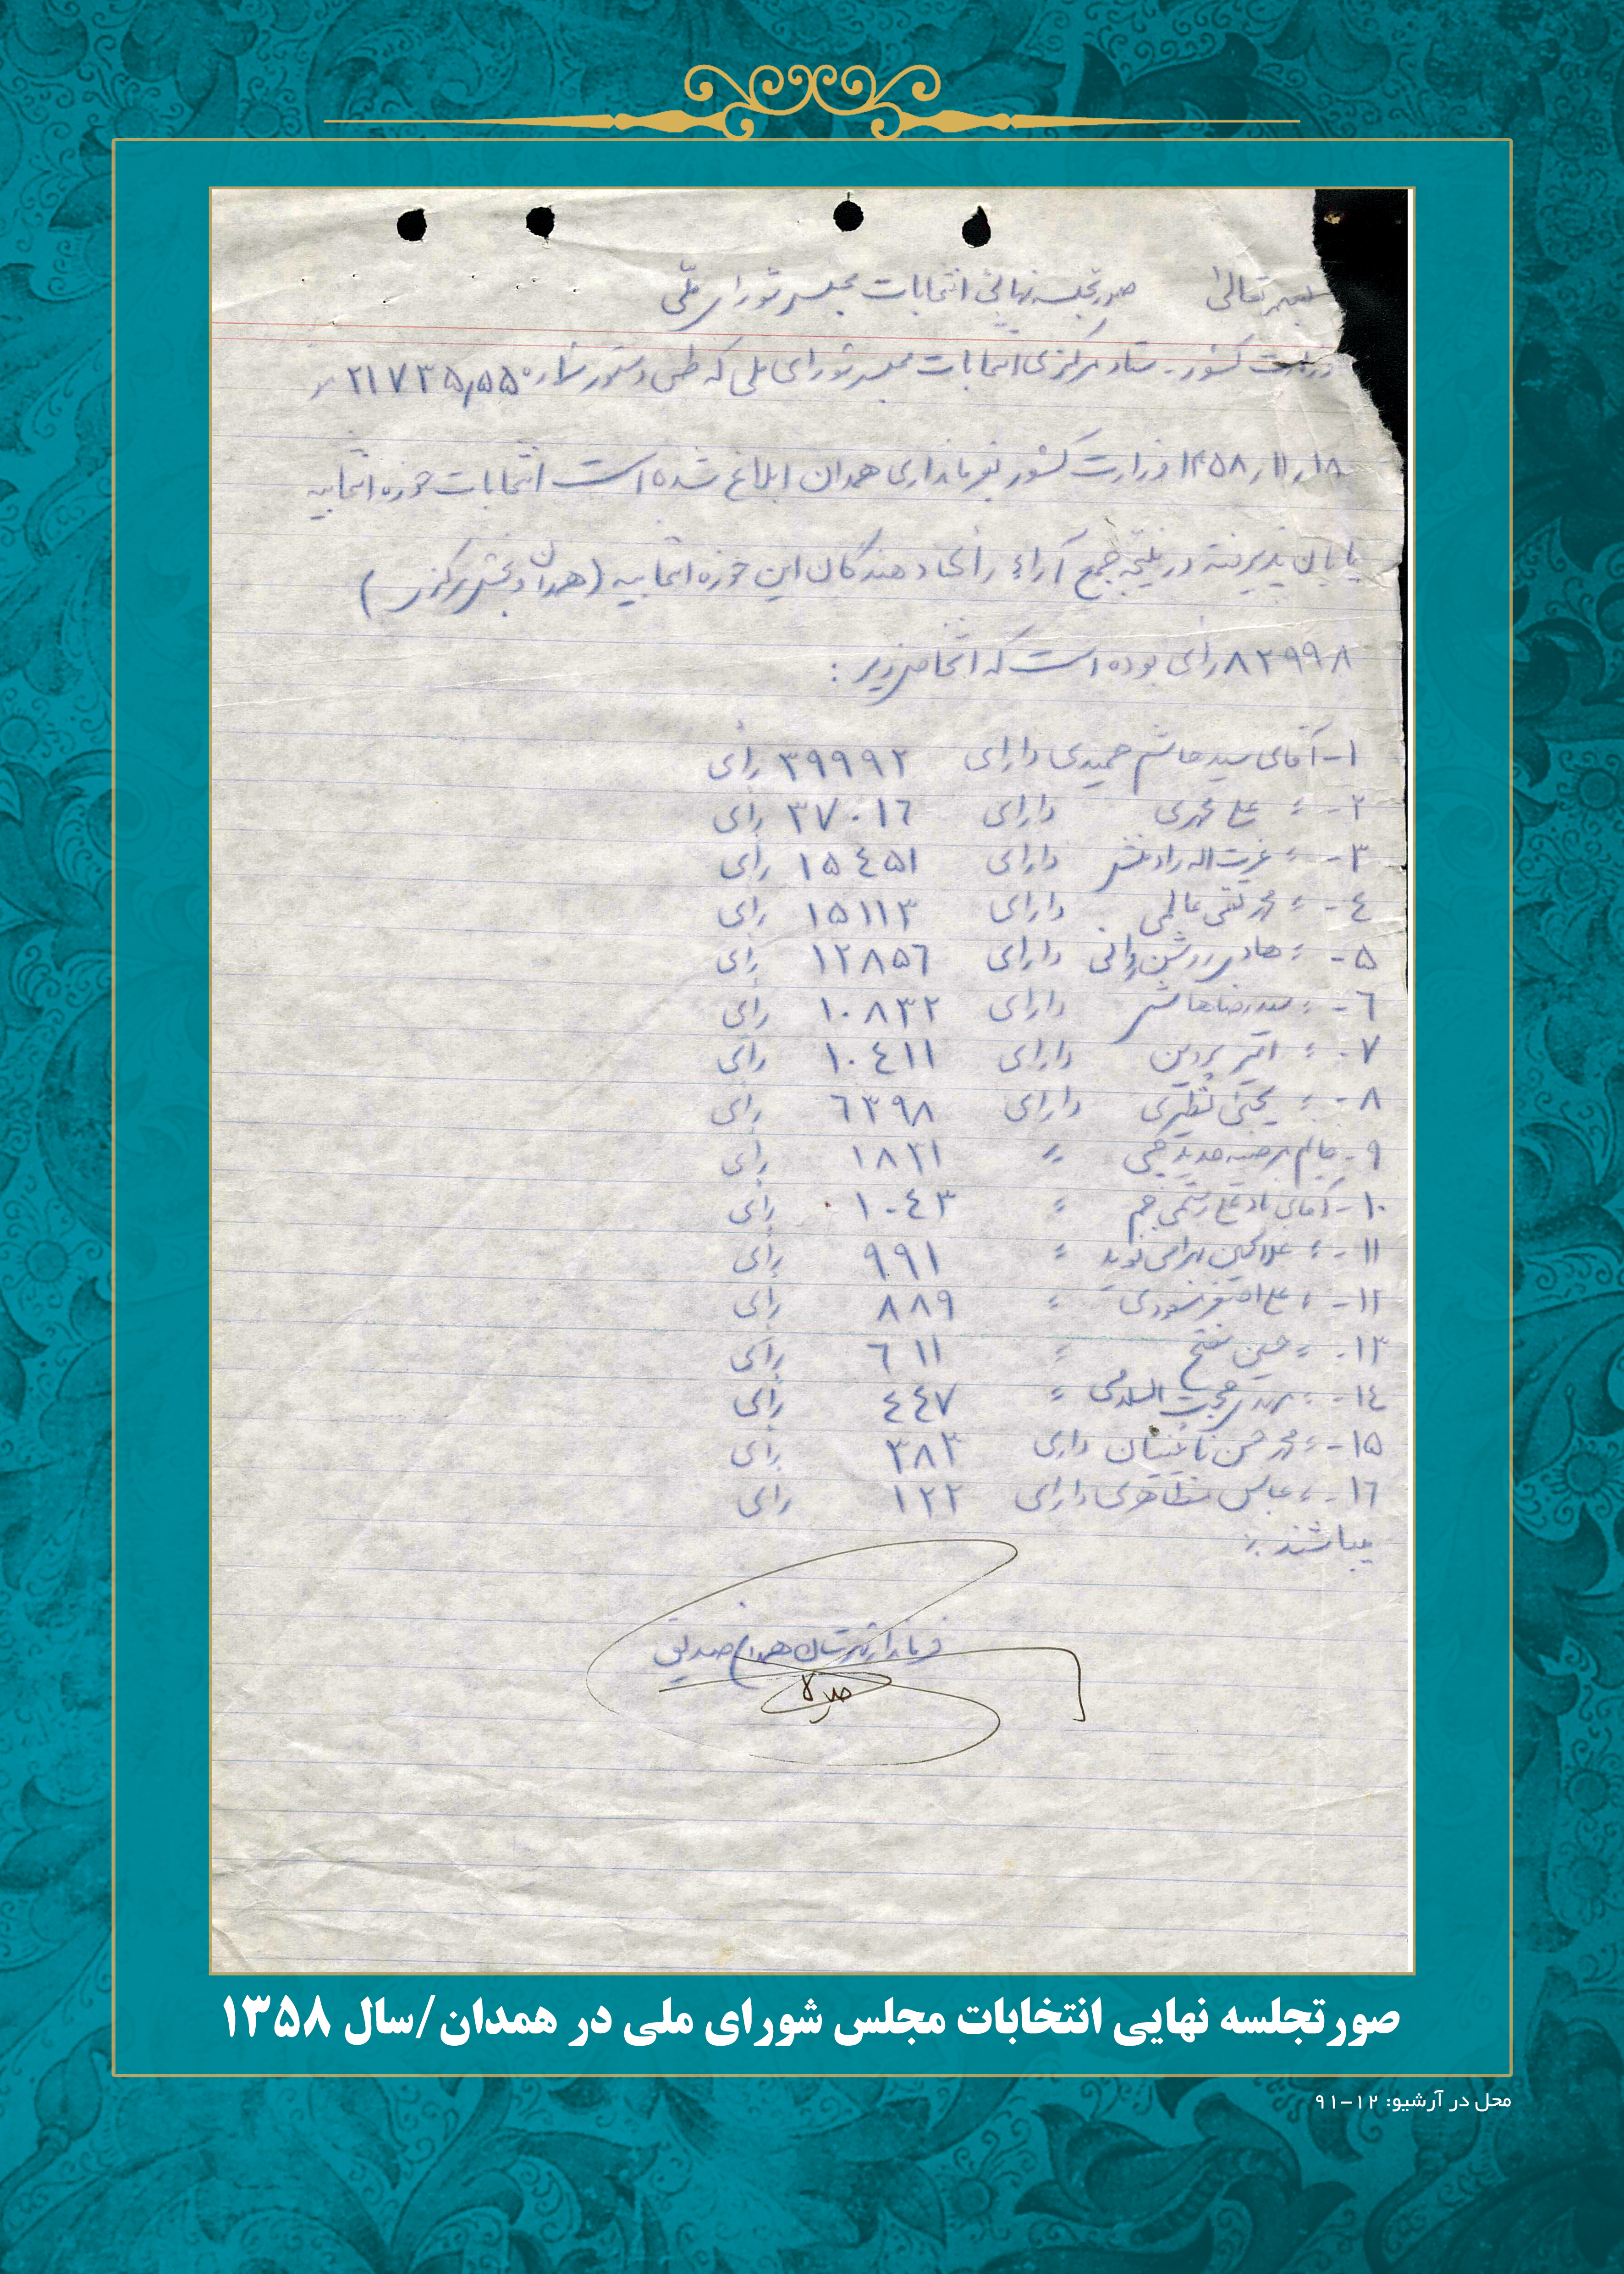 بسمه تعالی صورتجلسه نهائی انتخابات مجلس شورای ملی
وزارت کشور - ستاد مرکزی انتخابات مجلس شورای ملی که طی دستور شماره ۲۱۷۳۵٫۵۵
۱۸ر۱۱ر۱۳۵۸ وزارت کشور بفرمانداری همدان ابلاغ شده است انتخابات حوزه انتخابیه
پایان پذیرفته در نتیجه جمع آراء رأی دهندگان این حوزه انتخابیه (همدان و بخش مرکزی)
۸۲۹۹۸ رأی بوده است که اشخاص زیر :
۱- آقای سید هاشم حمیدی دارای ۳۹۹۹۲ رأی
۲- ء علی محمدی دارای ۳۷۰۱٦ رأی
۳- ء عزیت اله رادمنش دارای ۱۵٤۵۱ رأی
٤- ء محمد تقی عالمی دارای ۱۵۱۱۳ رأی
۵- ء هادی روشن روانی دارای ۱۲۸۵٦ رأی
٦- ء سید رضا هاشمی دارای ۱۰۸۳۲ رأی
۷- ء اکبر پروین دارای ۱۰٤۱۱ رأی
۸- ء یحیی نظیری دارای ٦۳۹۸ رأی
۹- خانم مرضیه حدیدچی ء ۱۸۲۱ رأی
۱۰- آقای ء ۱۰٤۳ رأی
۱۱- ء ء ۹۹۱ رأی
۱۲- ء علی اصغر ء ۸۸۹ رأی
۱۳- ء حسین مفتح ء ٦۱۱ رأی
۱٤- ء حجت السلامی ء ٤٤۷ رأی
۱۵- ء محمد حسن نائینیان دارای ۳۸۳ رأی
۱٦- ء عباس مظاهری دارای ۱۲۲ رأی
میباشند
فرماندار شهرستان همدان صدیقی
صورتجلسه نهایی انتخابات مجلس شورای ملی در همدان/سال ۱۳۵۸
محل در آرشیو: ۱۲-۹۱